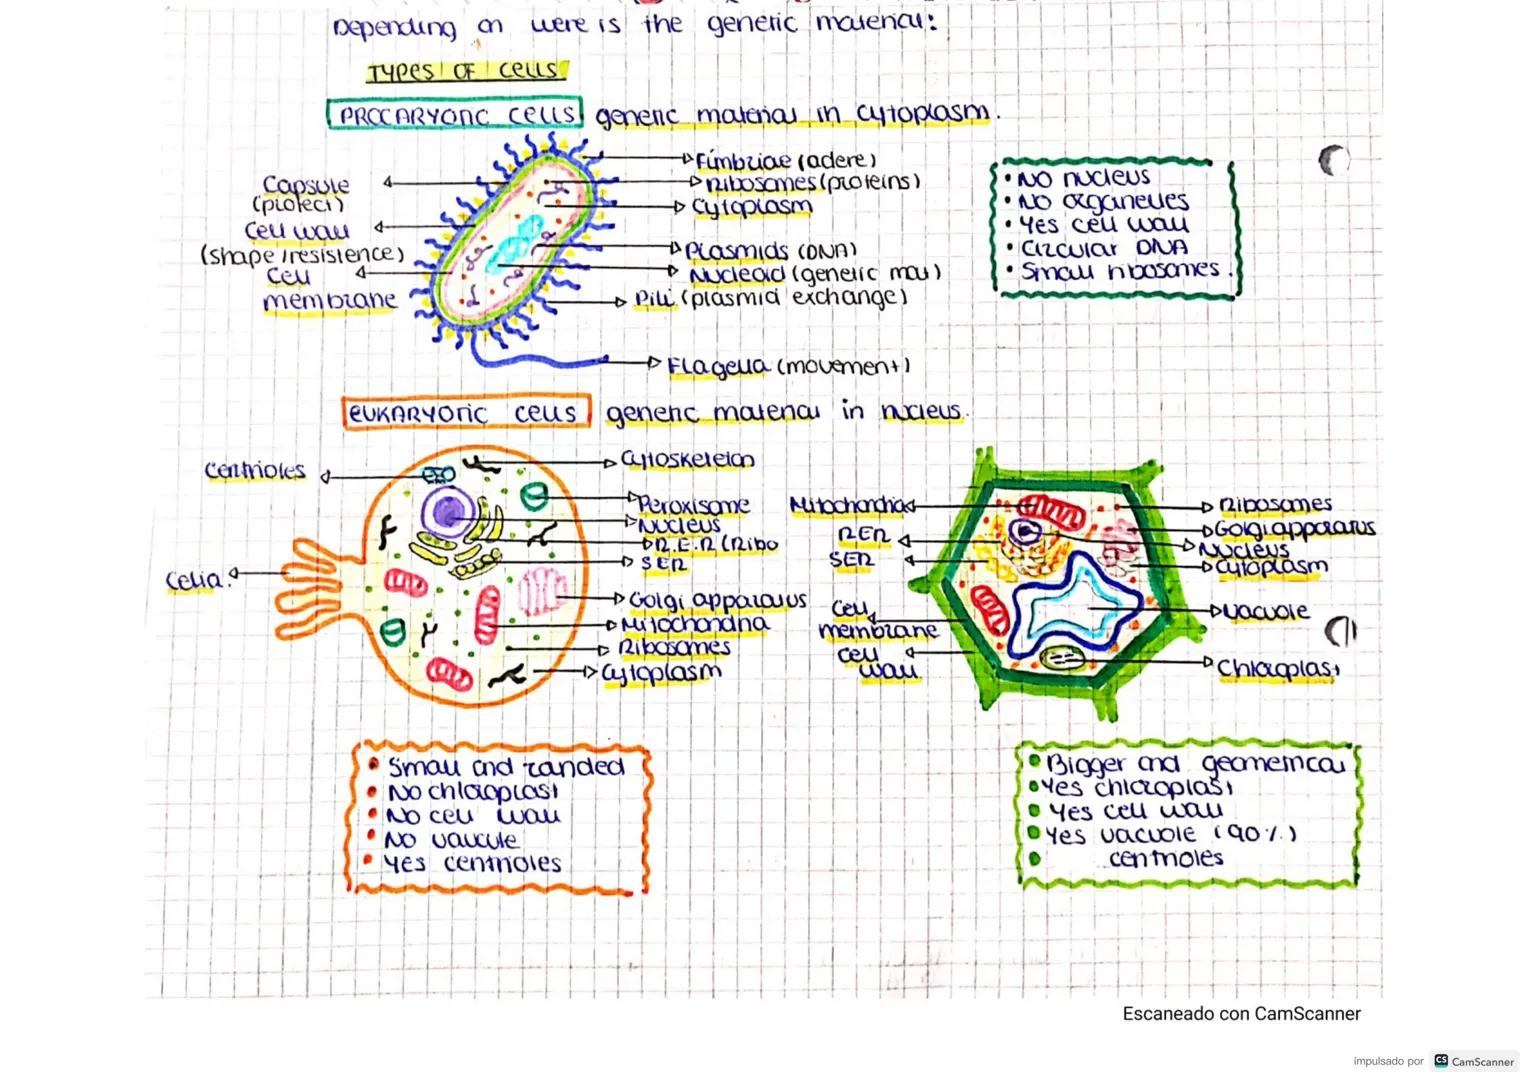 Depending on were is the generic material:
TYPES OF CELLS
PROCARYOTIC CELLS generic material in cytoplasm.
Capsule
(protect)
Cell wall
(shape/resistence)
Cell
membrane
Fimbriae (adere)
Ribosomes (proteins)
Cytoplasm
Plasmids (DNA)
Nucleoid (genetic mat)
Pili (plasmid exchange)
Flagella (movement)
• No nucleus
• No organelles
• Yes cell wall
• Circular DNA
• Small ribosomes.
EUKARYOTIC CELLS generic material in nucleus.
Centrioles
Celia?
Cytoskeleton
Peroxisome
Nucleus
R.E.R (Ribo
SER
Golgi apparatus
Mitochondria
Ribosomes
Cytoplasm
Mitochondria
RER
SER
Cell
membrane
Cell
wall
Ribosomes
Golgi apparatus
Nucleus
Cytoplasm
Vacuole
Chloroplast
• Small and randed
• No chloroplast
• No cell wall
• No vaucule
• Yes centrioles
• Bigger and geometrical
• Yes chloroplast
• Yes cell wall
• Yes vacuole (90%)
• centrioles
Escaneado con CamScanner
impulsado por CS CamScanner